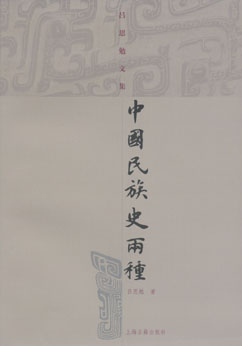 吕思勉文集
中國民族史兩種
吕思勉 著
上海古籍出版社